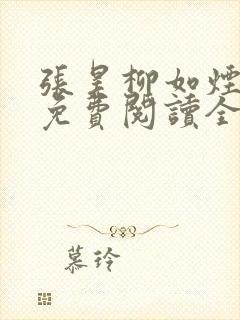 張昊柳如煙
免費閱讀全
慕玲